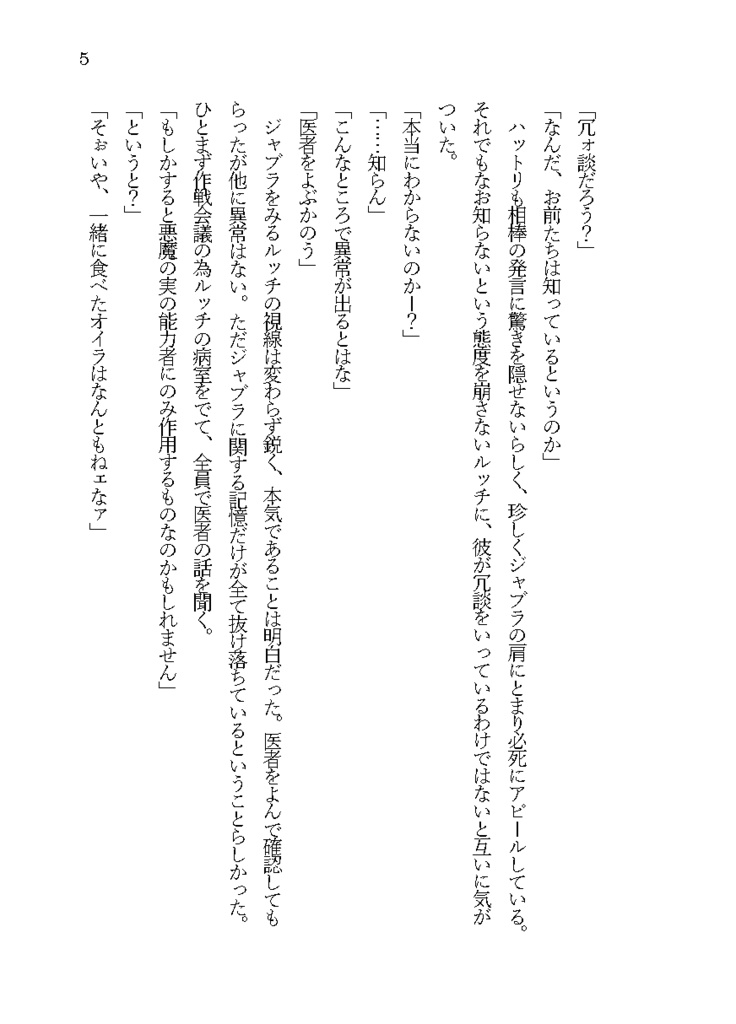 5
「冗ォ談だろう？」
「なんだ、お前たちは知っているというのか」
　ハットリも相棒の発言に驚きを隠せないらしく、珍しくジャブラの肩にとまり必死にアピールしている。
それでもなお知らないという態度を崩さないルッチに、彼が冗談をいっているわけではないと互いに気が
ついた。
「本当にわからないのかー？」
「……知らん」
「こんなところで異常が出るとはな」
「医者をよぶかのう」
　ジャブラをみるルッチの視線は変わらず鋭く、本気であることは明白だった。医者をよんで確認しても
らったが他に異常はない。ただジャブラに関する記憶だけが全て抜け落ちているということらしかった。
ひとまず作戦会議の為ルッチの病室をでて、全員で医者の話を聞く。
「もしかすると悪魔の実の能力者にのみ作用するものなのかもしれません」
「というと？」
「そぉいや、一緒に食べたオイラはなんともねェなァ」